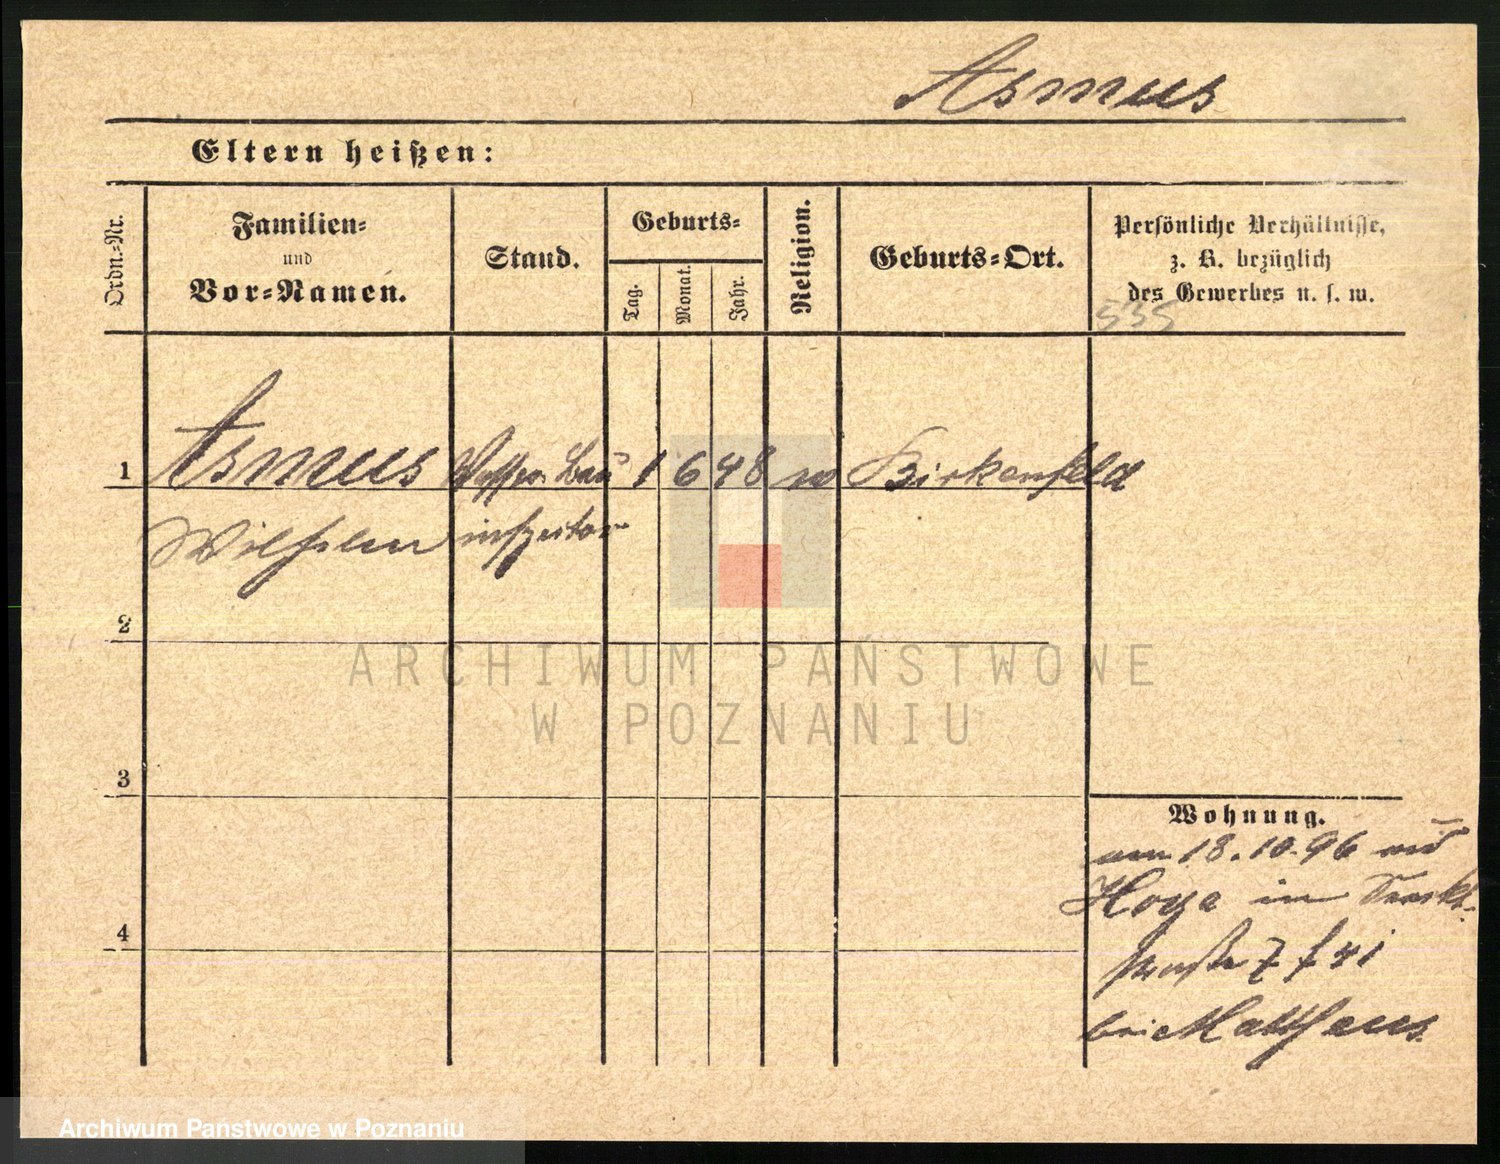 Asmus
Eltern heißen:
Ordn.-Nr.
Familien-
und
Vor-Namen.
Stand.
Geburts-
Tag.
Monat.
Jahr.
Religion.
Geburts-Ort.
Persönliche Verhältnisse,
z. B. bezüglich
des Gewerbes u. s. w.
535
1 Asmus Wasser Bau 1 6 48 Birkenfeld
Wilhelm inspector
2
ARCHIWUM PAŃSTWOWE
W POZNANIU
3
Wohnung.
18.10.96
Hoya in
straße 7
bei Matthaeus
4
Archiwum Państwowe w Poznaniu